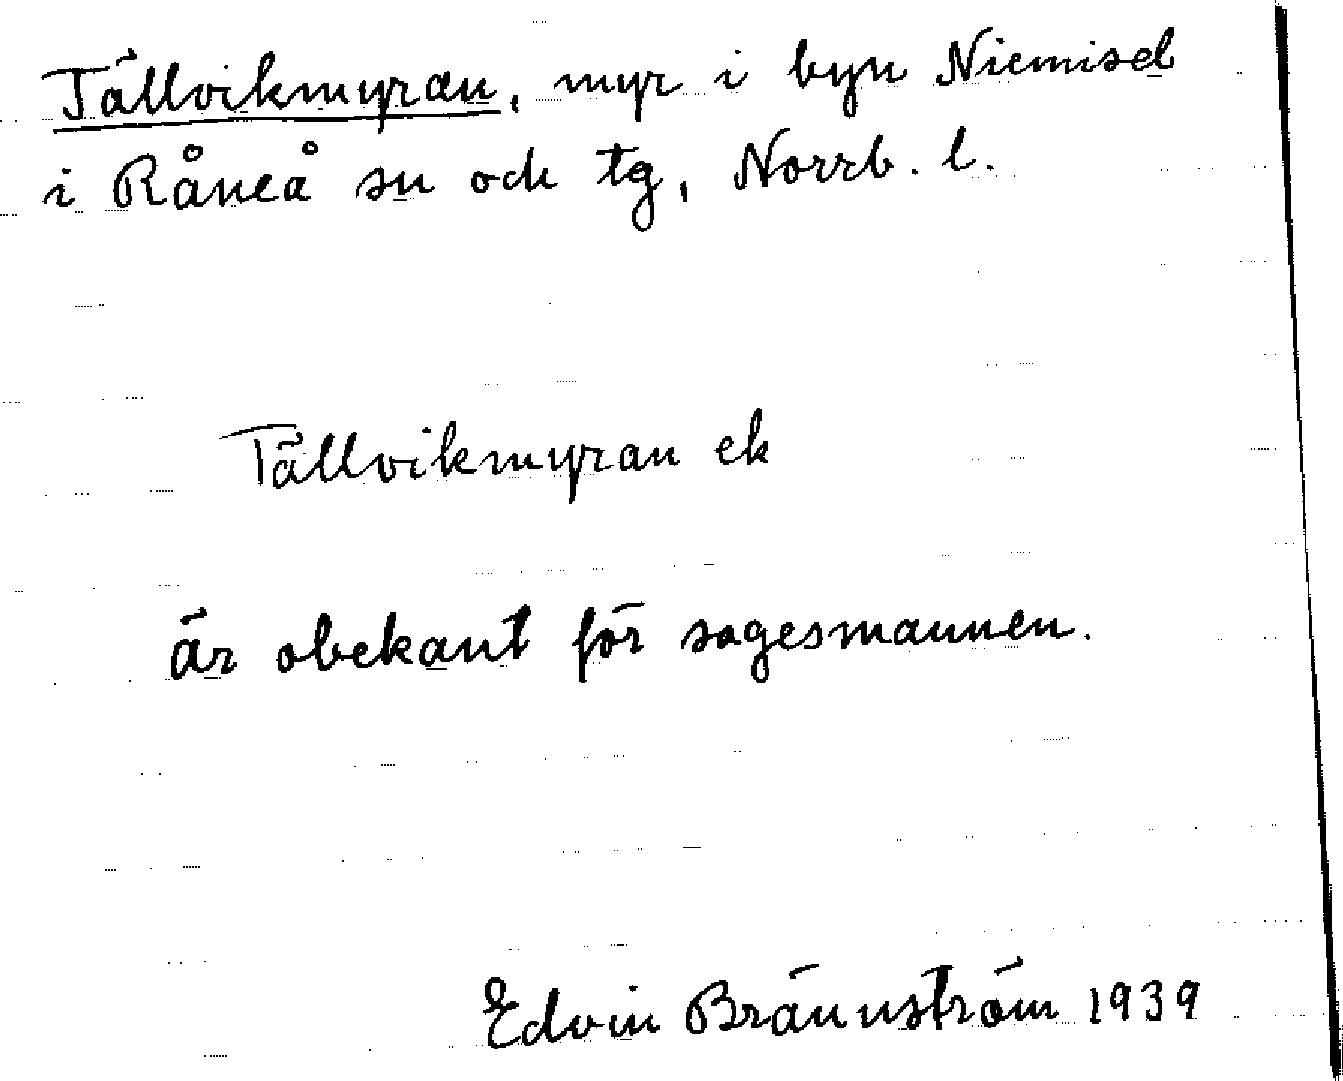 Tällvikmyran, myr i byn Niemisel
i Råneå sn och tg, Norrb. l.
Tällvikmyran ek
är obekant för sagesmannen.
Edvin Brännström 1939